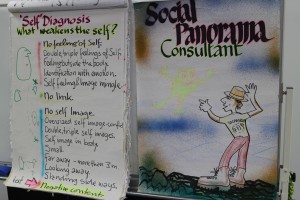 "Self" Diagnosis
what weakens the self?
No feelings of Self.
Double, triple feelings of Self
Feeling outside the body.
Identification with emotion.
Self feeling & Image mingle.
No link.
No self Image.
Double, triple self images.
Self image in body.
Small
Far away - more than 3m
Looking away
Standing side ways.
Negative content
Social
Panorama
Consultant